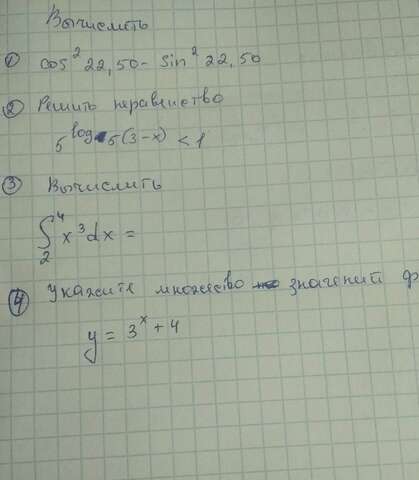 Вычислить
① cos² 22,50 - sin² 22,50
② Решить неравенство
5^log5(3-x) < 1
③ Вычислить
∫₂⁴ x³dx =
④ Укажите множество значений ф
y = 3ˣ + 4